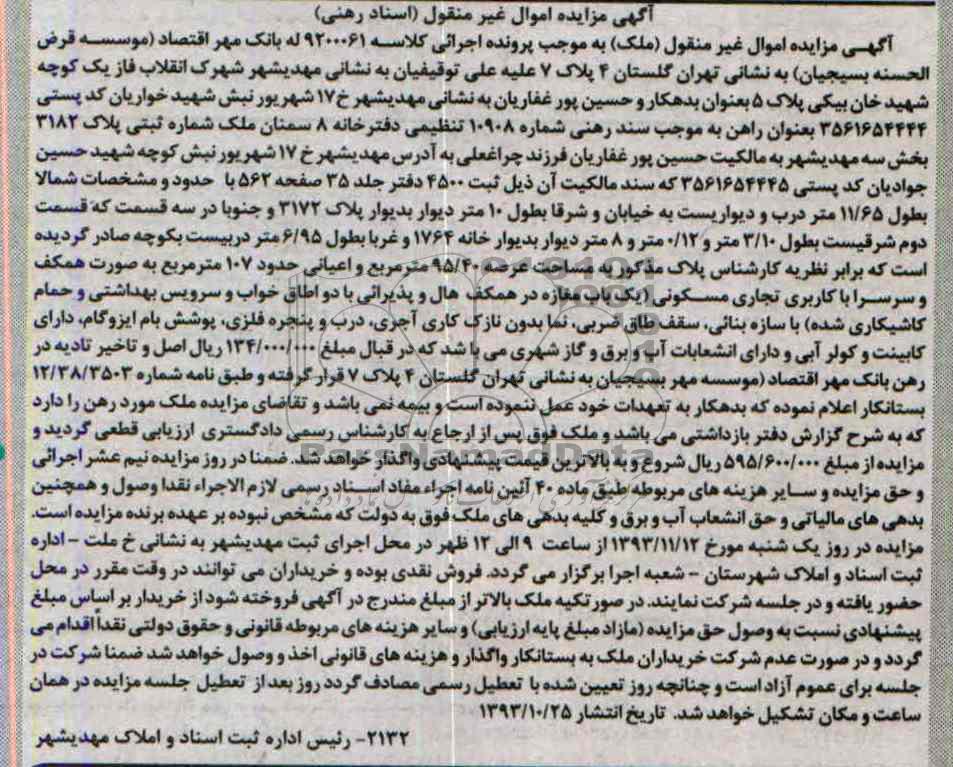 آگهی مزایده اموال غیر منقول (اسناد رهنی)
آگهـی مزایده اموال غیر منقول (ملک) به موجب پرونده اجرائی کلاسـه ۹۲۰۰۰۶۱ له بانک مهر اقتصاد (موسسـه قرض
الحسنه بسیجیان) به نشانی تهران گلستان ۴ پلاک ۷ علیه علی توقیفیان به نشانی مهدیشهر شهرک انقلاب فاز یک کوچه
شهید خان بیکی پلاک ۵ بعنوان بدهکار و حسین پور غفاریان به نشانی مهدیشهر خ ۱۷ شهریور نبش شهید خواریان کد پستی
۳۵۶۱۶۵۴۴۴۴ بعنوان راهن به موجب سند رهنی شماره ۱۰۹۰۸ تنظیمی دفترخانه ۸ سمنان ملک شماره ثبتی پلاک ۳۱۸۲
بخش سه مهدیشهر به مالکیت حسین پور غفاریان فرزند چراغعلی به آدرس مهدیشهر خ ۱۷ شهریور نبش کوچه شهید حسین
جوادیان کد پستی ۳۵۶۱۶۵۴۴۴۵ که سند مالکیت آن ذیل ثبت ۴۵۰۰ دفتر جلد ۳۵ صفحه ۵۶۲ با حدود و مشخصات شمالا
بطول ۱۱/۶۵ متر درب و دیواریست به خیابان و شرقا بطول ۱۰ متر دیوار بدیوار پلاک ۳۱۷۲ و جنوبا در سه قسمت که قسمت
دوم شرقیست بطول ۳/۱۰ متر و ۰/۱۲ متر و ۸ متر دیوار بدیوار خانه ۱۷۶۴ و غربا بطول ۶/۹۵ متر دربیست بکوچه صادر گردیده
است که برابر نظریه کارشناس پلاک مذکور به مساحت عرصه ۹۵/۴۰ مترمربع و اعیانی حدود ۱۰۷ مترمربع به صورت همکف
و سرسـرا با کاربری تجاری مسـکونی (یک باب مغازه در همکف هال و پذیرائی با دو اطاق خواب و سرویس بهداشتی و حمام
کاشیکاری شده) با سازه بنائی، سقف طاق ضربی، نما بدون نازک کاری آجری، درب و پنجره فلزی، پوشش بام ایزوگام، دارای
کابینت و کولر آبی و دارای انشعابات آب و برق و گاز شهری می باشد که در قبال مبلغ ۱۳۴/۰۰۰/۰۰۰ ریال اصل و تاخیر تادیه در
رهن بانک مهر اقتصاد (موسسه مهر بسیجیان به نشانی تهران گلستان ۴ پلاک ۷ قرار گرفته و طبق نامه شماره ۱۲/۳۸/۳۵۰۳
بستانکار اعلام نموده که بدهکار به تعهدات خود عمل ننموده است و بیمه نمی باشد و تقاضای مزایده ملک مورد رهن را دارد
که به شرح گزارش دفتر بازداشتی می باشد و ملک فوق پس از ارجاع به کارشناس رسمی دادگستری ارزیابی قطعی گردید و
مزایده از مبلغ ۵۹۵/۶۰۰/۰۰۰ ریال شروع و به بالاترین قیمت پیشنهادی واگذار خواهد شد. ضمنا در روز مزایده نیم عشر اجرائی
و حق مزایده و سـایر هزینه های مربوطه طبق ماده ۴۰ آئین نامه اجراء مفاد اسـناد رسمی لازم الاجراء نقدا وصول و همچنین
بدهی های مالیاتی و حق انشعاب آب و برق و کلیه بدهی های ملک فوق به دولت که مشخص نبوده بر عهده برنده مزایده است.
مزایده در روز یک شنبه مورخ ۱۳۹۳/۱۱/۱۲ از ساعت ۹ الی ۱۲ ظهر در محل اجرای ثبت مهدیشهر به نشانی خ ملت – اداره
ثبت اسناد و املاک شهرستان – شعبه اجرا برگزار می گردد. فروش نقدی بوده و خریداران می توانند در وقت مقرر در محل
حضور یافته و در جلسه شرکت نمایند. در صورتکیه ملک بالاتر از مبلغ مندرج در آگهی فروخته شود از خریدار بر اساس مبلغ
پیشنهادی نسبت به وصول حق مزایده (مازاد مبلغ پایه ارزیابی) و سایر هزینه های مربوطه قانونی و حقوق دولتی نقداً اقدام می
گردد و در صورت عدم شرکت خریداران ملک به بستانکار واگذار و هزینه های قانونی اخذ و وصول خواهد شد ضمنا شرکت در
جلسه برای عموم آزاد است و چنانچه روز تعیین شده با تعطیل رسمی مصادف گردد روز بعد از تعطیل جلسه مزایده در همان
ساعت و مکان تشکیل خواهد شد. تاریخ انتشار ۱۳۹۳/۱۰/۲۵
۲۱۳۲– رئیس اداره ثبت اسناد و املاک مهدیشهر